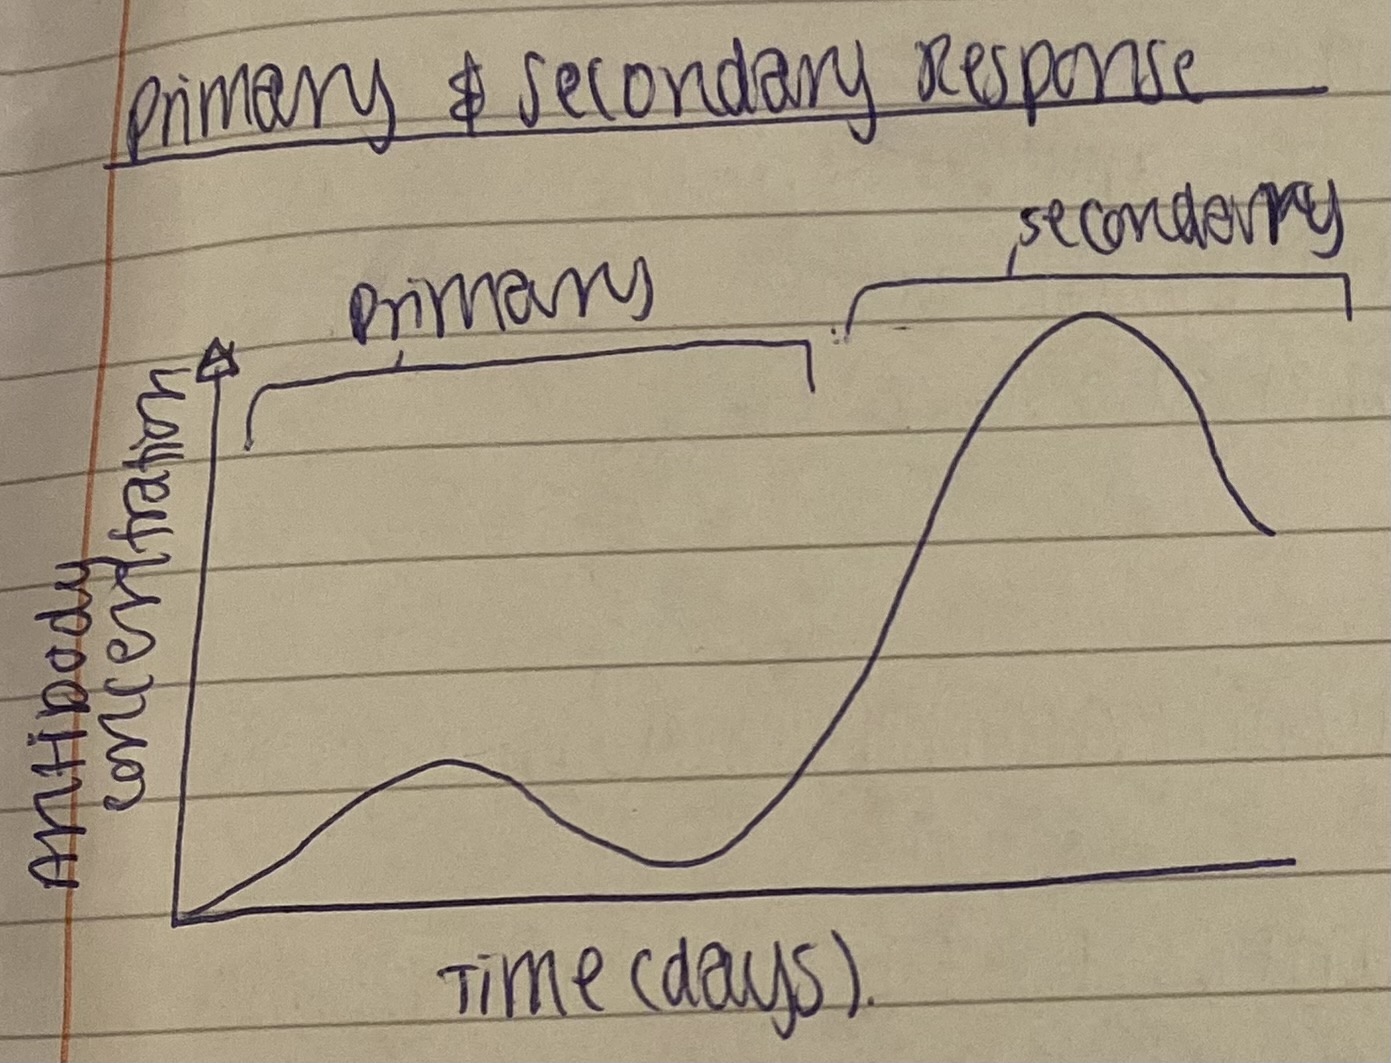 primary & secondary Response
secondary
primary
Antibody
concentration
Time (days).